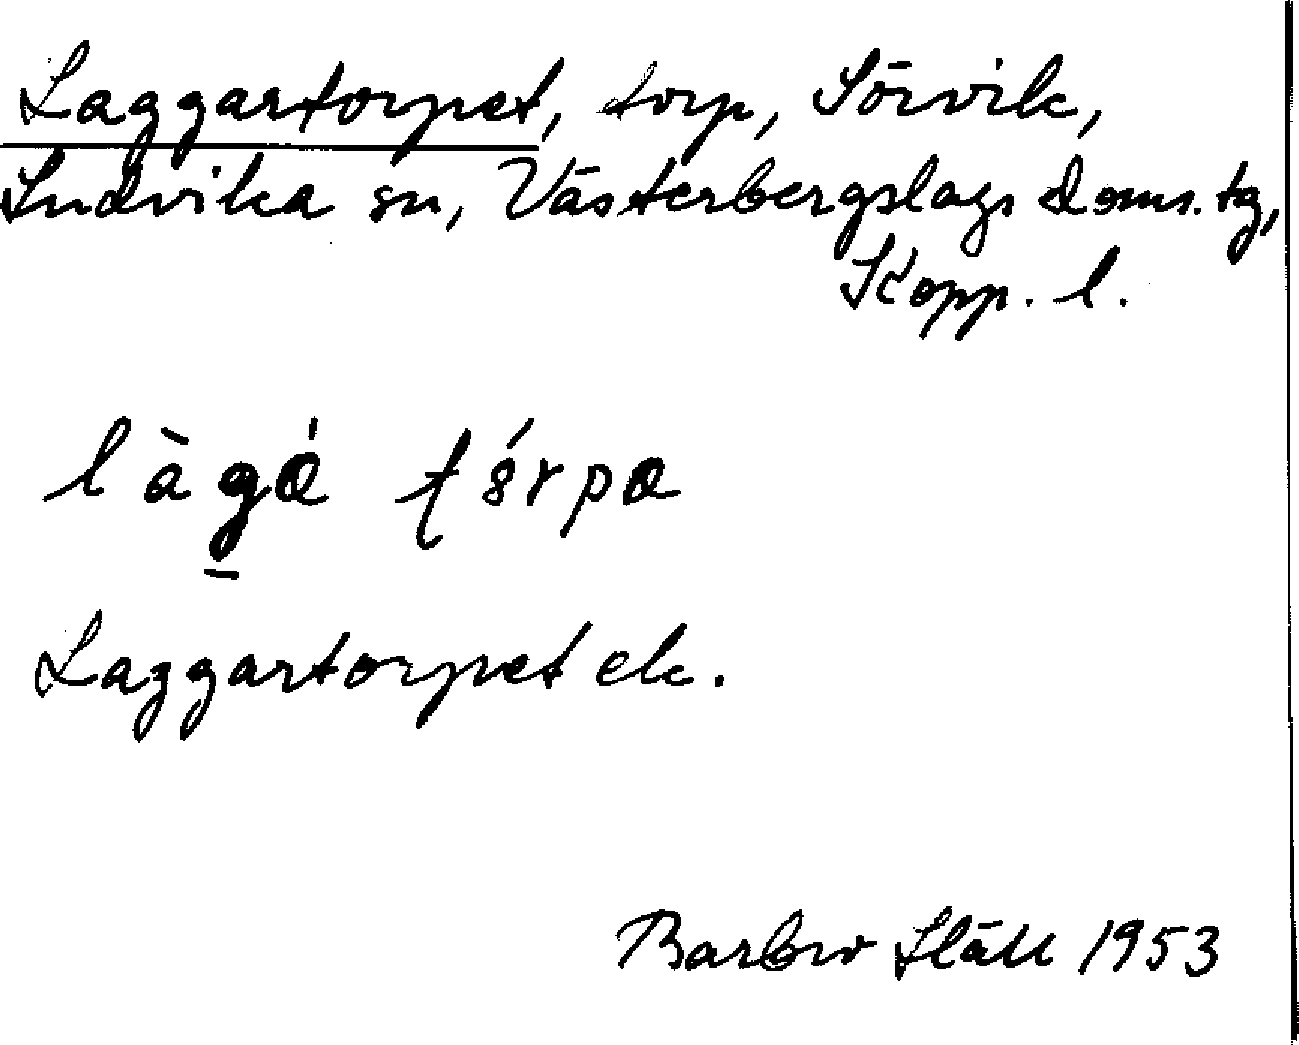 Laggartorpet, torp, Sörvik,
Ludvika sn, Västerbergslags doms. tg,
Kopp. l.
Laggartorpet ek.
Barbro Släll 1953